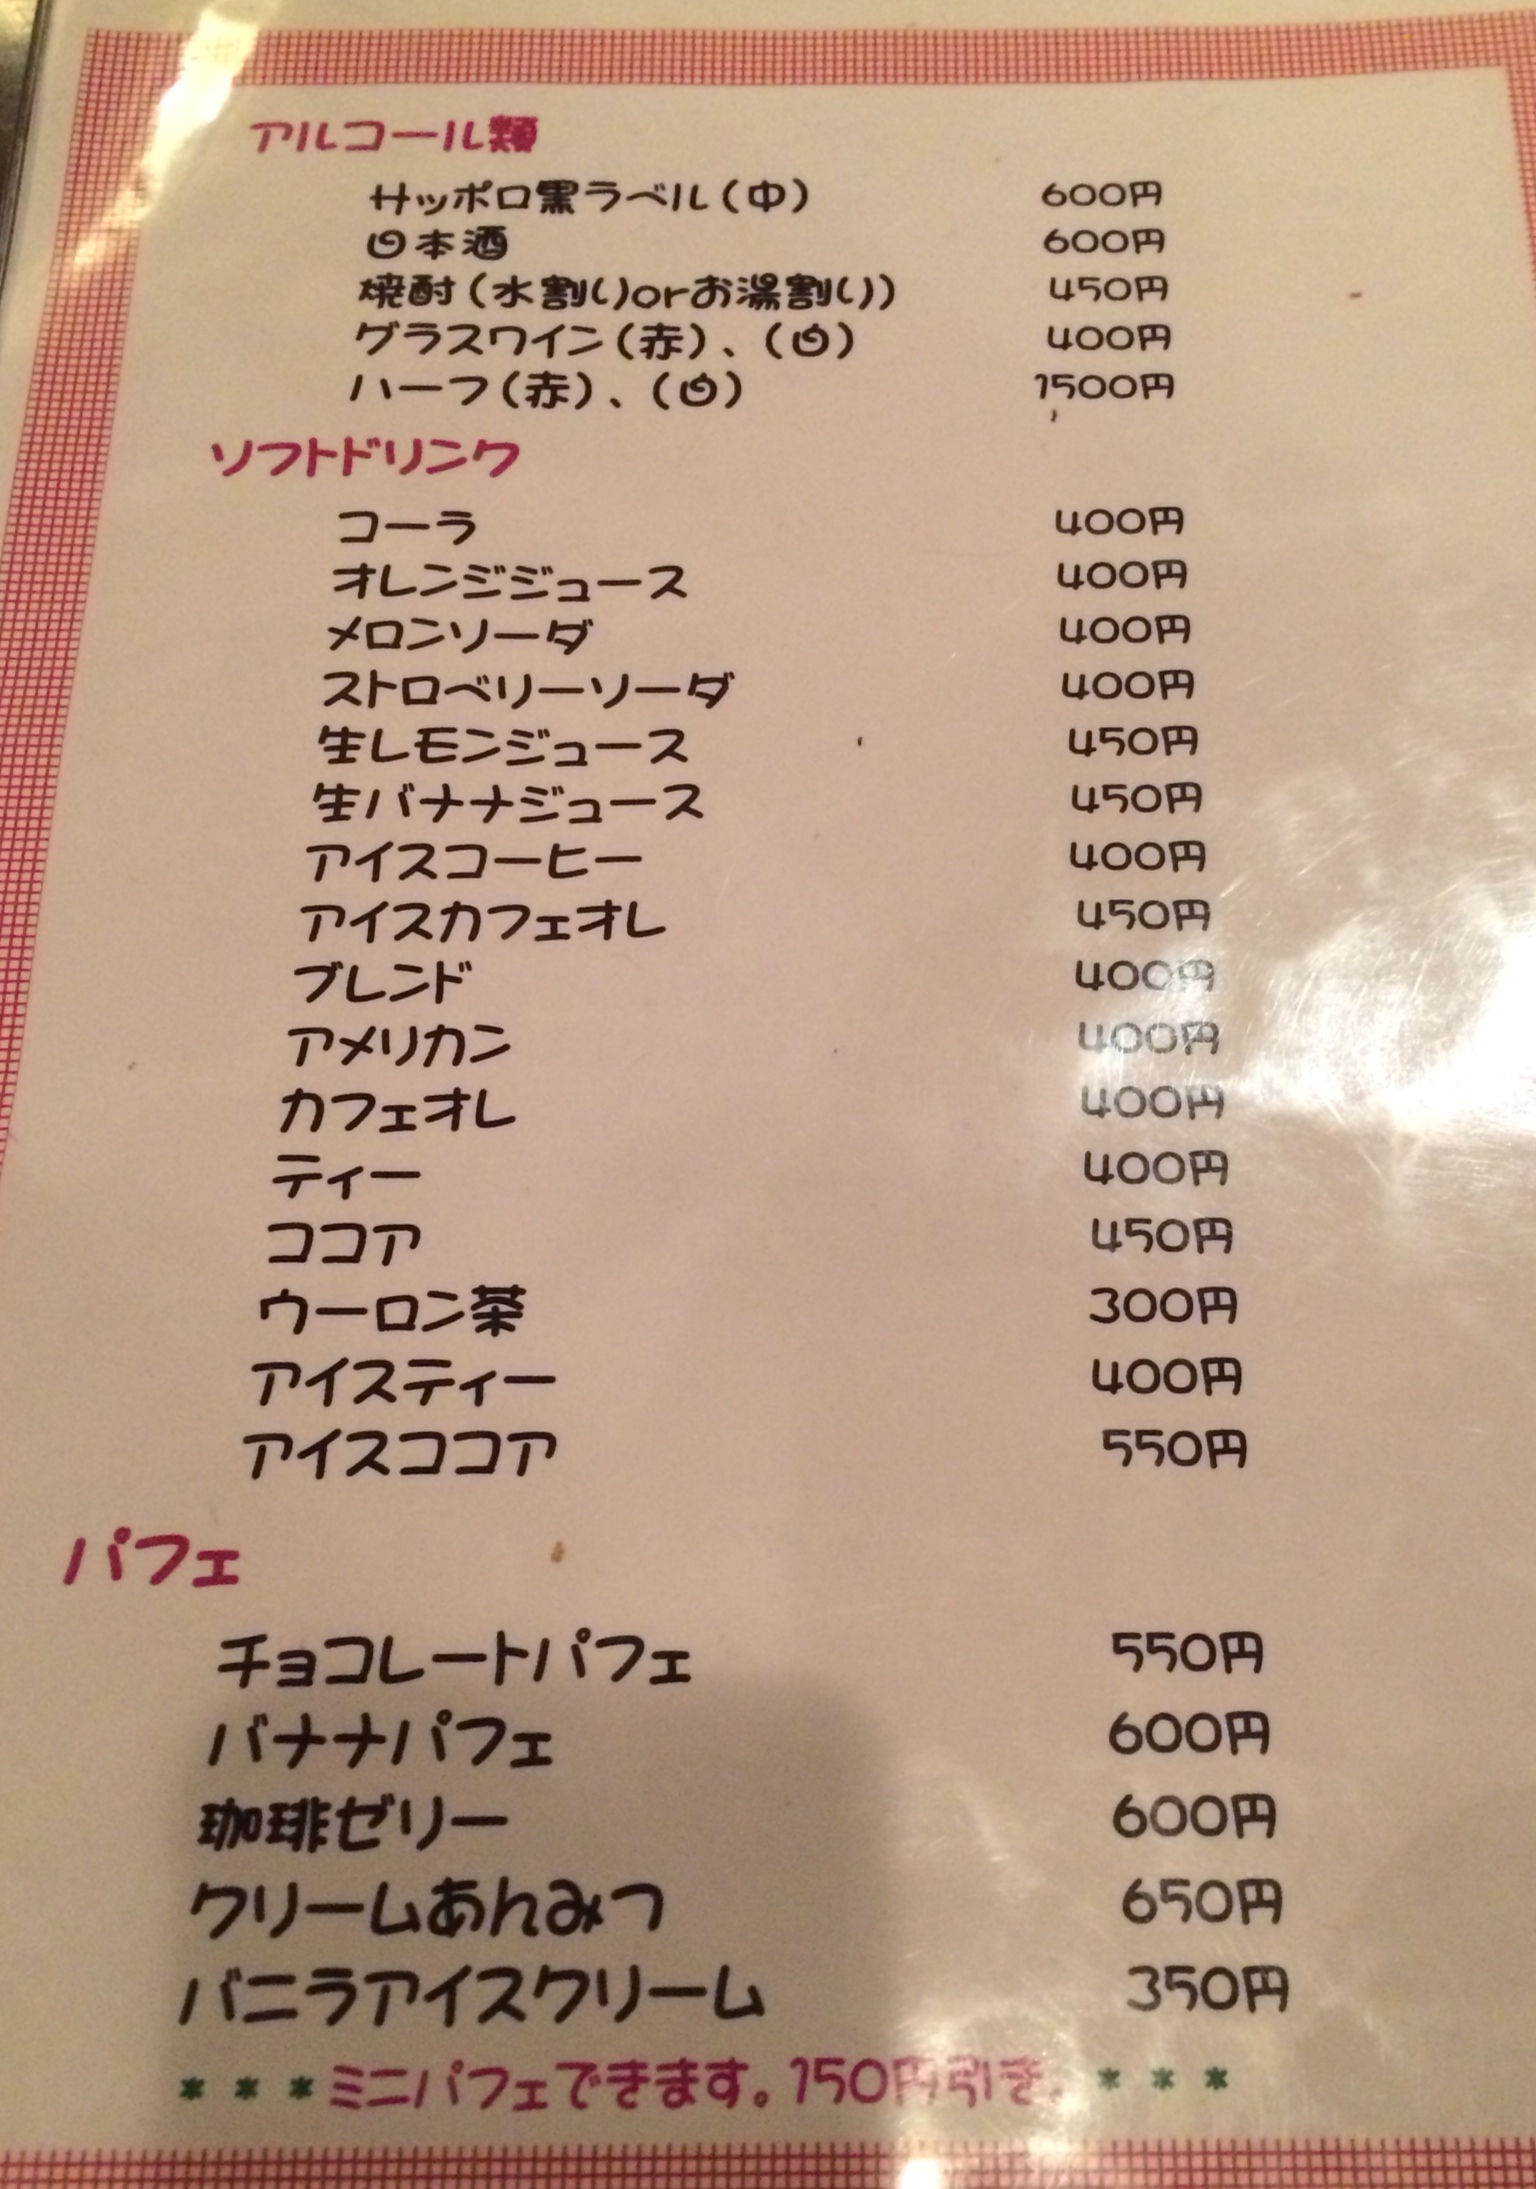 アルコール類
サッポロ黒ラベル(中) 600円
日本酒 600円
焼酎(水割りorお湯割り) 450円
グラスワイン(赤)、(白) 400円
ハーフ(赤)、(白) 1500円
ソフトドリンク
コーラ 400円
オレンジジュース 400円
メロンソーダ 400円
ストロベリーソーダ 400円
生レモンジュース 450円
生バナナジュース 450円
アイスコーヒー 400円
アイスカフェオレ 450円
ブレンド 400円
アメリカン 400円
カフェオレ 400円
ティー 400円
ココア 450円
ウーロン茶 300円
アイスティー 400円
アイスココア 550円
パフェ
チョコレートパフェ 550円
バナナパフェ 600円
珈琲ゼリー 600円
クリームあんみつ 650円
バニラアイスクリーム 350円
***ミニパフェできます。150円引き。***